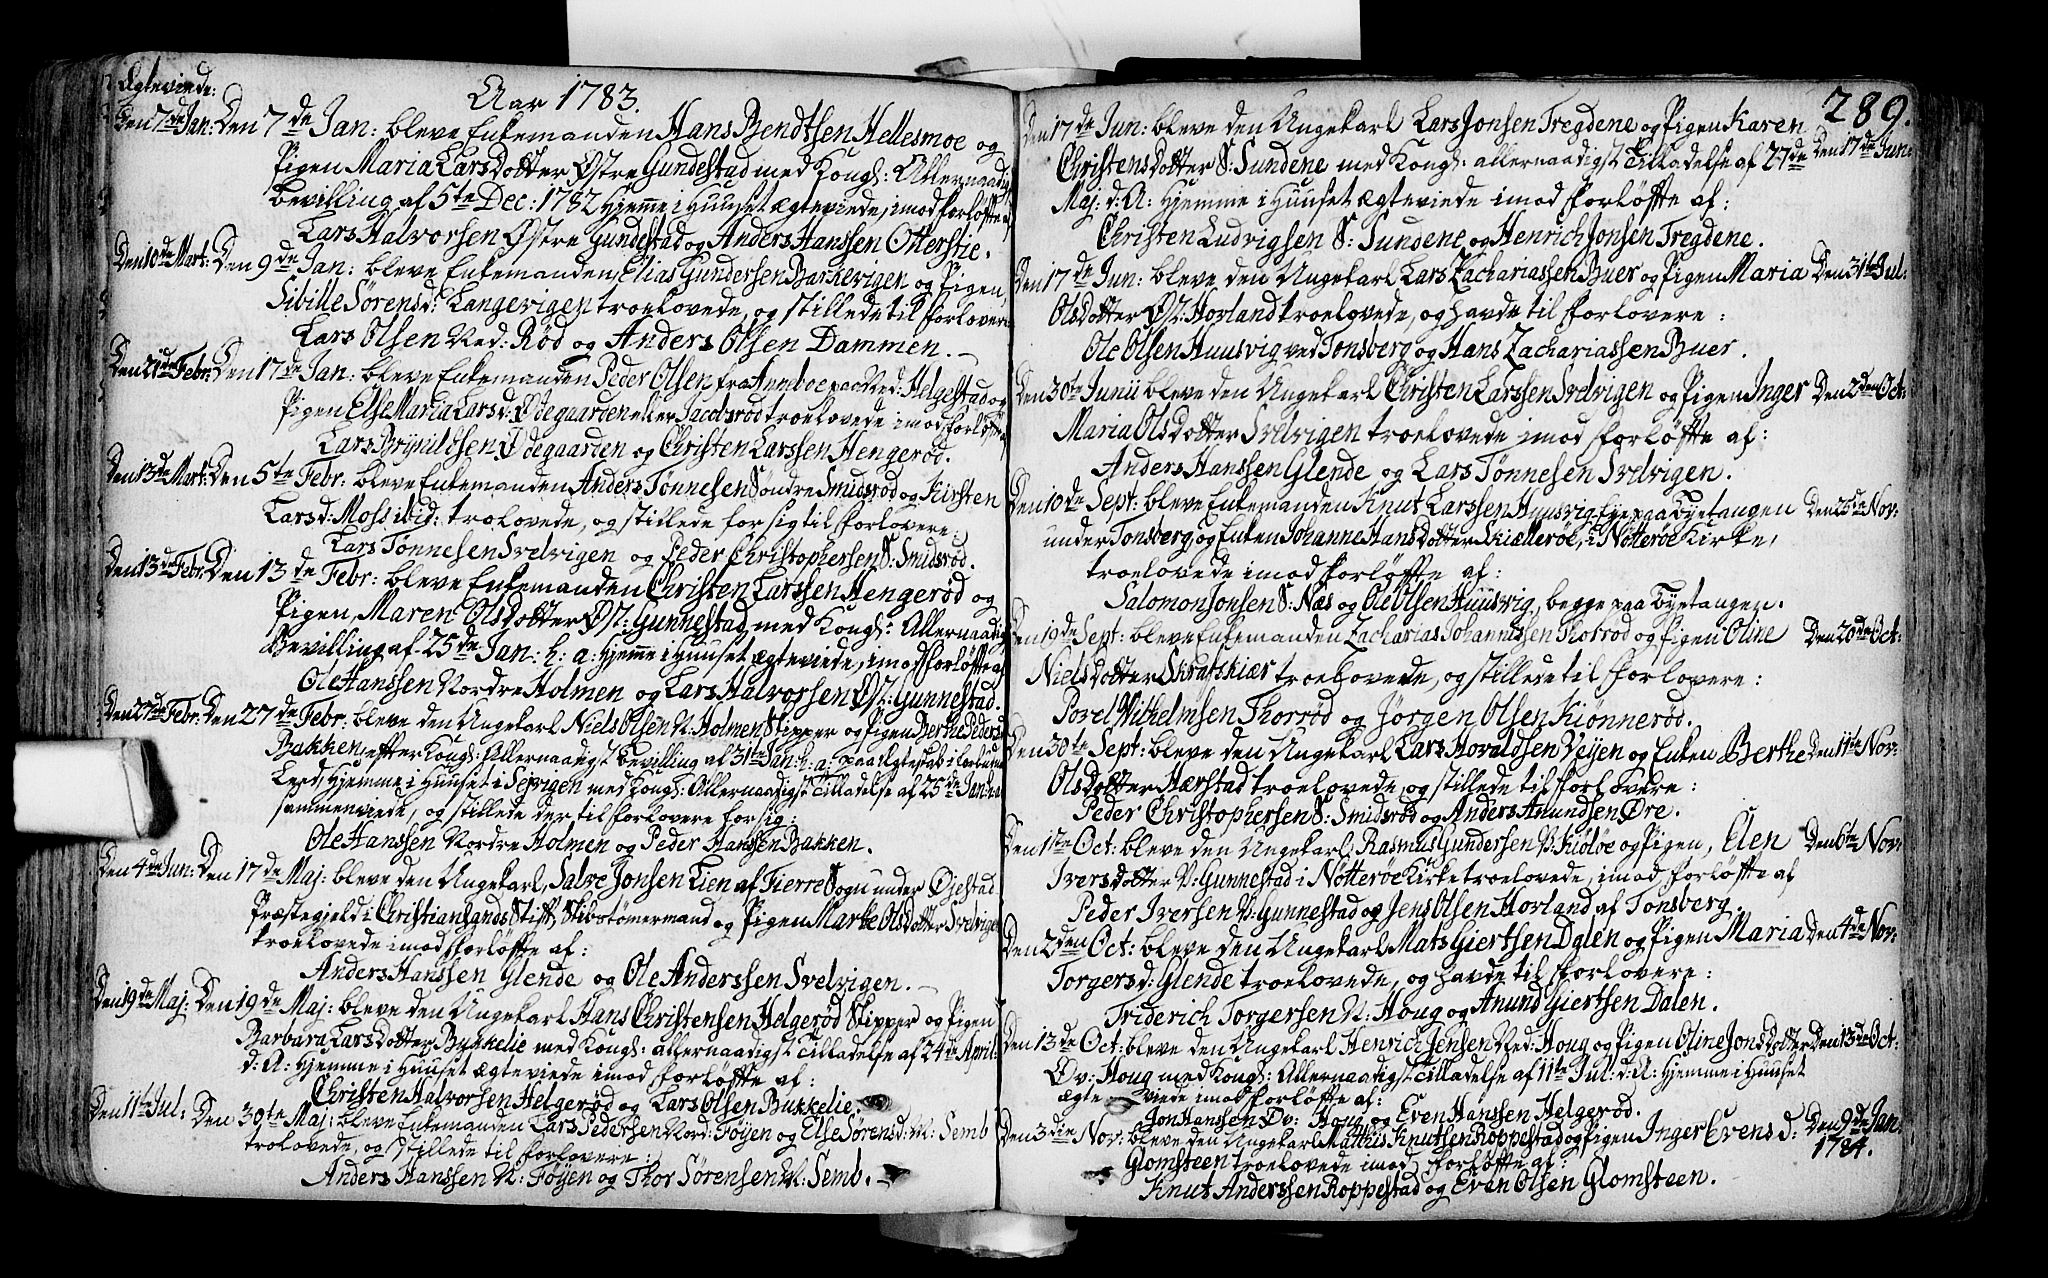 Ægteviede:
Aar 1783.
Den 7de Jan: Den 7de Jan: bleve Enkemanden Hans Bendtsen Hellesmoe og
Pigen Maria LarsDotter Østre Gundestad med Kongl: Allernaadigst
Bevilling af 5te Dec: 1782 Hjemme i Huuset ægteviede, imod Forløfte af
Lars Halvorsen Østre Gundestad og Anders Hanssen Otterstie.
Den 10de Mart: Den 9de Jan: bleve Enkemanden Elias Gundersen Barkevigen og Pigen,
Sibille Sørensd: Langevigen troelovede, og stillede til Forlovere
Lars Olsen Ned: Rød og Anders Olsen Dammen.
Den 21de Febr: Den 17de Jan: bleve Enkemanden Peder Olsen fra paa Ned: Helgestad og
Pigen Else Maria Larsd: Ødegaarden eller Jacobsrød troelovede imod Forløfte af
Lars Brynildsen Ødegaarden og Christen Larssen Hengerød.
Den 13de Mart: Den 5te Febr: bleve Enkemanden Anders Tønnesen Søndre Smidsrød og Kirsten
Larsd: Moss ibid: trolovede, og stillede for sig til Forlovere
Lars Tønnesen Svelvigen og Peder Christophersen S: Smidsrød.
Den 13de Febr: Den 13de Febr: bleve Enkemanden Christen Larssen Hengerød og
Pigen, Maren OlsDotter Øst: Gunnestad med Kongl: Allernaadigst
Bevilling af 25de Jan: h: a: Hjemme i Huuset ægteviede, imod Forløfte af
Ole Hanssen Nordre Holmen og Lars Halvorsen Øst: Gunnestad.
Den 27de Febr: Den 27de Febr: bleve den Ungekarl Niels Olsen N: Holmen Skipper og Pigen Berthe Pedersd:
Bakken, efter Kongl: Allernaadigst Bevilling af 31te Jan: h: a: paa Ægteskab i forbudne
Leed, Hjemme i Huuset i med Kongl: Allernaadigst Tilladelse af 25de Jan: h: a:
sammenviede, og stillede der til Forlovere for sig:
Ole Hanssen Nordre Holmen og Peder Hanssen Bakken.
Den 4de Jun: Den 17de Maj: bleve den Ungekarl, Salve Jonsen Lien af Fierre Sogn under Øjestad
Præstegjeld i Christiansands Stift, og Pigen Marthe OlsDotter Svelvigen
troelovede imod Forløfte af:
Anders Hanssen Glende og Ole Anderssen Svelvigen.
Den 19de Maj: Den 19de Maj: bleve den Ungekarl Hans Christensen Helgerød Skipper og Pigen
Barbara LarsDotter Buskelie med Kongl: allernaadigst Tilladelse af 24de April:
d: A: Hjemme i Huuset ægteviede imod Forløfte af:
Christen Halvorsen Helgerød og Lars Olsen Buskelie.
Den 11te Jul: Den 30te Maj: bleve Enkemanden Lars Pedersen Nord: Føyen og Else Sørensd: N: Semb
trolovede, og stillede til Forlovere:
Anders Hanssen N: Føyen og Thor Sørensen N: Semb.
289.
Den 17de Jun: bleve den Ungekarl Lars Jonsen Tregdene og Pigen Karen
ChristensDotter S: Sundene med Kongl: allernaadigst Tilladelse af 27de Den 17de Jun:
Maj: d: A: Hjemme i Huuset ægteviede imod Forløfte af:
Christen Ludvigsen S: Sundene og Henrich Jonsen Tregdene.
Den 17de Jun: bleve den Ungekarl Lars Zachariassen Buer og Pigen Maria Den 31te Jul:
OlsDotter Øst: Horland troelovede, og havde til Forlovere:
Ole Olsen Huusvig ved Tonsberg og Hans Zachariassen Buer.
Den 30te Junii bleve den Ungekarl Christen Larssen Svelvigen og Pigen Inger Den 2den Oct:
Maria OlsDotter Svelvigen troelovede imod Forløfte af:
Anders Hanssen Glende og Lars Tønnesen Svelvigen.
Den 10de Sept: bleve Enkemanden Knut Larssen Huusvig Eye paa Byetangen Den 25de Nov:
under Tonsberg og Enken Johanne HansDotter Skiælleröe, i Nötteröe Kirke,
troelovede imod Forløfte af:
Salomon Jonsen S: Næs og Ole Olsen Huusvig, begge paa Byetangen.
Den 19de Sept: bleve Enkemanden Zacharias Johannissen Thorrød og Pigen Oline Den 20de Oct:
NielsDotter Skratskiær troelovede, og stillede til Forlovere:
Povel Wilhelmsen Thorrød og Jørgen Olsen Kiønnerød.
Den 30te Sept: bleve den Ungekarl Lars Hovaldsen Veyen og Enken Berthe Den 11te Nov:
OlsDotter Hærstad troelovede, og stillede til Forlovere:
Peder Christophersen S: Smidsrød og Anders Amundsen Øre.
Den 1ste Oct: bleve den Ungekarl, Rasmus Gundersen V: Kiöløe og Pigen, Elen Den 6te Nov:
IversDotter V: Gunnestad i Nötteröe Kirke troelovede, imod Forløfte af
Peder Iversen V: Gunnestad og Jens Olsen Horland af Tonsberg.
Den 2den Oct: bleve den Ungekarl Mats Giertsen Dalen og Pigen Maria Den 4de Nov:
Torgersd: Glende troelovede, og havde til Forlovere:
Friderich Torgersen N: Houg og Anund Giertsen Dalen.
Den 13de Oct: bleve den Ungekarl Henrich Jensen Ned: Houg og Pigen Oline JonsDotter Den 13de Oct:
Øv: Houg med Kongl: Allernaadigst Tilladelse af 11te Jul: d: A: Hjemme i Huuset
ægteviede imod Forløfte af:
Jon Hanssen Øv: Houg og Even Hanssen Helgerød.
Den 3die Nov: bleve den Ungekarl Mathis Knutsen Roppestad og Pigen Inger Evensd: Den 9de Jan:
Glomsteen troelovede imod Forløfte af: 1784.
Knut Anderssen Roppestad og Even Olsen Glomsteen.